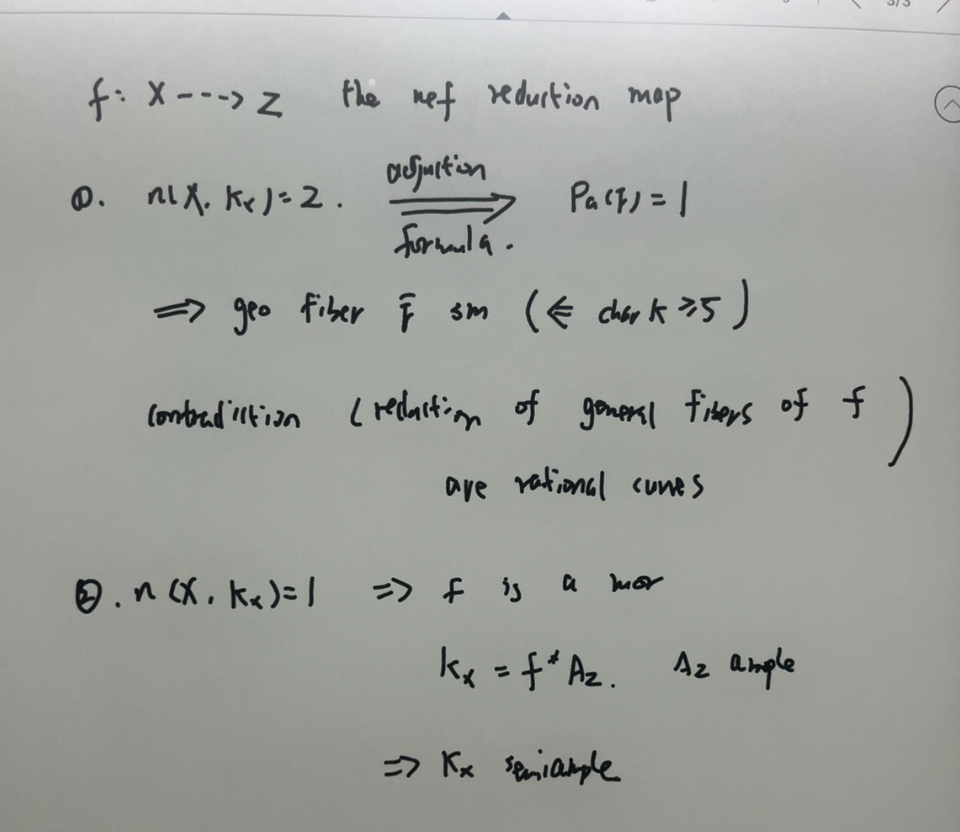 3/3
f: X ---> Z the nef reduction map
①. n(X, Kx)=2. adjuction formula. ⟹ Pa(F) = 1
⟹ geo fiber F̄ sm (⇐ char k ≥5)
contradiction (reduction of general fibers of f)
are rational curves
②. n(X, Kx)=1 ⟹ f is a mor
Kx = f* Az. Az ample
⟹ Kx semiample